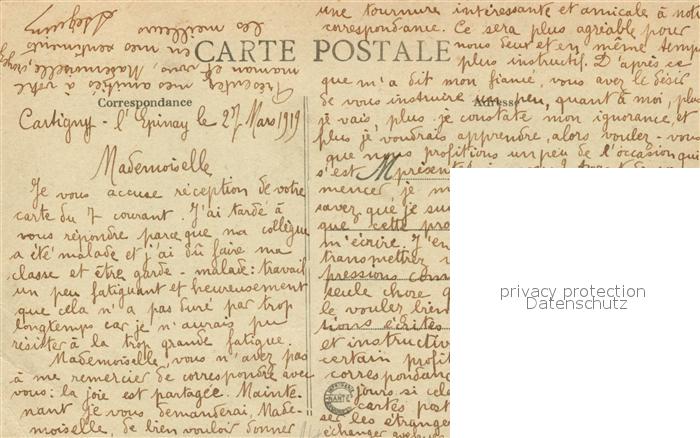 CARTE POSTALE
Correspondance
Adresse
Cartigny - l'Epinay le 27 Mars 1919
Mademoiselle
Je vous accuse réception de votre
carte du 7 courant. J'ai tardé à
vous répondre parce que ma collègue
a été malade et j'ai dû faire ma
classe et être garde-malade: travail
un peu fatiguant et heureusement
que cela n'a pas duré par trop
longtemps car je n'aurais pu
résister à la trop grande fatigue.
Mademoiselle, vous n'avez pas
à me remercier de correspondre avec
vous: la joie est partagée. Mainte-
nant je vous demanderai, Made-
moiselle, de bien vouloir donner
une tournure intéressante et amicale à notre
correspondance. Ce sera plus agréable pour
nous deux et en même temps
plus instructif. D'après ce
que m'a dit mon fiancé, vous avez le désir
de vous instruire un peu, quant à moi, plus
je vais, plus je constate mon ignorance et
plus je voudrais apprendre, alors voulez-vous
que nous profitions un peu de l'occasion qui
s'est présenté
mencer, je m
savez que je su
que cette pro
m'écrire. J'en
transmettrez
pressions com
seule chose q
le voulez bien
tions écrites
et instructiv
certain profit
correspondanc
jours si cela
cartes post
ser les étrange
échanger quelques
M
NANTES
Présentez mes amitiés à votre
maman et vous, Mademoiselle, croyez
en mes sentiments
les meilleurs
privacy protection
Datenschutz